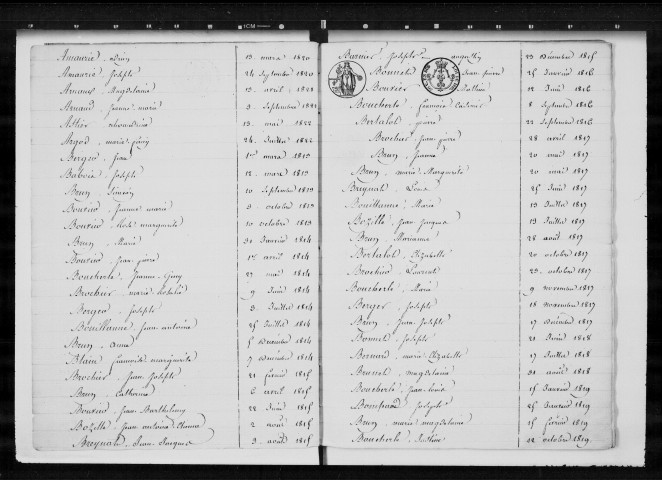 Amaurie Louis 13 mars 1820
Amaurie Joseph 24 Septembre 1820
Arnaud Magdelaine 13 avril 1821
Arnaud jeanne marie 3 Septembre 1821
13 mai 1822
Argod marie 24 Juillet 1822
Berger Jean 1er mars 1813
Joseph 12 mars 1813
Brun Siméon 10 Septembre 1813
Bouxier Jeanne marie 3 octobre 1813
Bouxier Rose marguerite 10 octobre 1813
Brun Marie 31 Janvier 1814
Bouxier Jean pierre 1er avril 1814
Boucherle Jeanne 27 mai 1814
Brochier marie 9 Juin 1814
Berger Joseph 3 Juillet 1814
Bouillanne Jean antoine 25 Juillet 1814
Brun anne 5 Décembre 1814
Blain marguerite 9 Décembre 1814
Brochier Jean Joseph 21 février 1815
Brun Catherine 6 avril 1815
Bouxier Jean Barthelemy 22 Juin 1815
Bozelle Jean antoine Etienne 2 août 1815
Breynat Jean Jacques 3 août 1815
Barnier Joseph augustin 23 Décembre 1815
Bonnet Jean pierre 25 Janvier 1816
Bouxier 12 Juin 1816
Boucherle François Casimir 8 Septembre 1816
Bertalot pierre 22 Septembre 1816
Brochier Jean pierre 28 avril 1817
Brun Jeanne 20 mai 1817
Brun marie Marguerite 20 mai 1817
Breynat Louis 25 Juin 1817
Bouillanne Marie 13 Juillet 1817
Bozelle Jean Jacques 19 Juillet 1817
Brun Marianne 28 août 1817
Bertalot Elizabelle 20 octobre 1817
Brochier Laurent 23 octobre 1817
Boucherle Marie 9 novembre 1817
Berger Joseph 18 novembre 1817
Brun Jean Joseph 17 Décembre 1817
Bonnet Joseph 21 1818
Bernard marie Elizabelle 17 Juillet 1818
Brunet magdelaine 31 août 1818
Boucherle Jean louis 15 Janvier 1819
Joseph 25 Janvier 1819
Brun marie magdelaine 15 février 1819
Boucherle Justine 12 octobre 1819